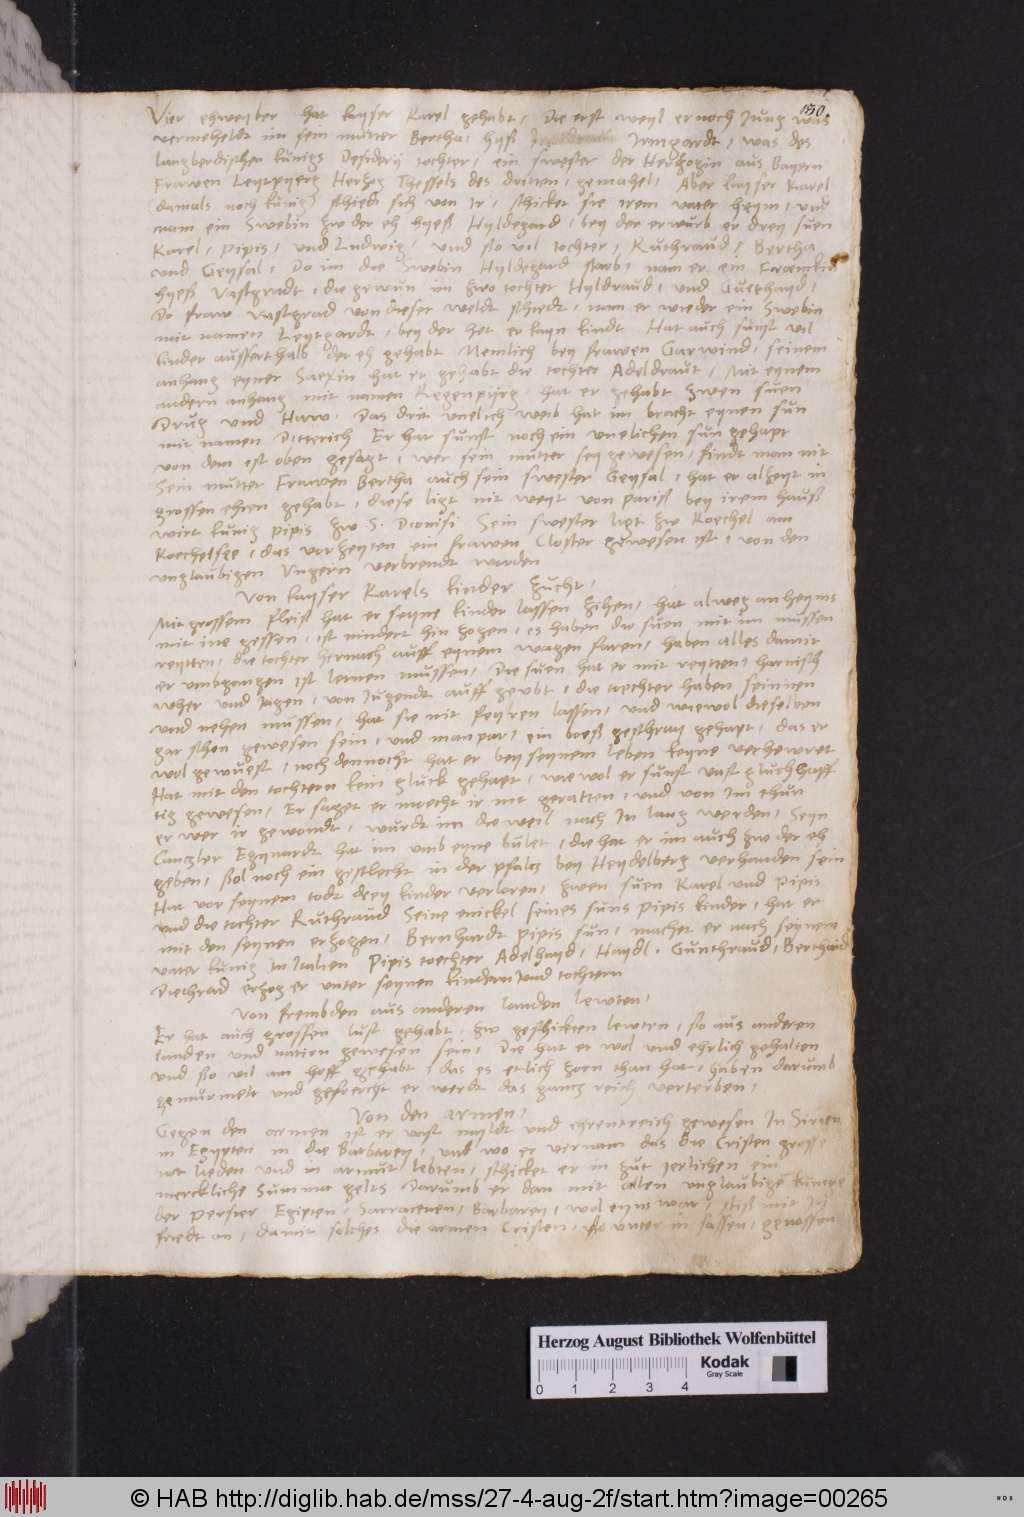 130.
Vier eheweyber hat kayser Karel gehabt / Die erst weyl er noch Jung was
vermeheldt im sein mutter Bertha / hyeß Irmgardt / was des
langberdischen kunigs Desiderij tochter / ein swester der Herzogin aus Bayern
Frawen Leytpyerg Herzog Thessels des dritten / gemahel / Aber kayser Karel
(damals noch kunig) schiedt sich von Ir / schicket sie irem vater heym / und
nam ein Swebin zw der eh hyeß Hyldegard / bey der erwurb er drey suen
Karel / Pipis / und Ludwig / und so vil tochter / Ruthraud / Bertha
und Geysal / Do im die Swebin Hyldegard starb / nam er ein Franckin
hyeß Vastgradt / die gewun im zwo tochter Hyldraud / und Guethayd /
Do fraw Vastgrad von dieser weldt schiedt / nam er wieder ein Swebin
mit namen Leytgardt / bey der het er kayn kindt Hat auch sunst vil
kinder aussserthalb der eh gehabt Nemlich bey frawen Garwind / seinem
anhang eyner Saexin hat er gehabt die tochter Adeldraut / Mit eynem
andern anhang mit namen Regenpurg hat er gehabt zwen suen
Drug und Haw. Das drit unelich weib hat im bracht eynen sun
mit namen Ditterich Er hat sunst noch ein unelichen sun gehapt
von dem ist oben gesagt / wer sein mutter sey gewesen / findt man nit
Sein mutter Frawen Bertha auch sein swester Geysal / hat er alzeyt in
grossen ehren gehabt / diese ligt nit weyt von paris bey irem hauß
wirt kunig pipis zw S. Dionisi Sein swester ligt zw Koechel am
Koechelsee / das vorzeyten ein frawen Closter gewesen ist / von den
unglaubigen Ungern verbrendt warden
Von kayser Karels kinder zucht /
Mit grossem fleiß hat er seyne kinder lassen zihen / hat alweg anheyms
mit ine gessen / ist nindert hin zogen / es haben die suen mit im mussen
reytten / die tochter hernach auff eynem wagen faren / haben alles damit
er umbgangen ist lernen mussen / Die suen hat er mit reytten / harnisch
wher und Jagen / von Jugendt auff geubt / die toechter haben spinnen
und nehen mussen / hat sie nit feyren lassen / und wiewol dieselben
gar schon gewesen sein / und man par / ein boeß geschray gehapt / das er
wol gewuest / noch dennocht hat er bey seynem leben keyne verheyret
Hat mit den tochtern kein gluck gehapt / wie wol er sunst vast gluckhaff
tig gewesen / Er saget er moecht ir nit geratten / und von Im thun
er wer ir gewondt / wurdt im die weil nach In lang werden / Seyn
Cantzler Egynardt hat im umb eyne bulet / die hat er im auch zw der eh
geben / sol noch ein geschlecht in der pfaltz bey Heydelberg verhanden sein
Hat vor seynem todt drey kinder verloren / zwen suen Karel und Pipis
und die tochter Ruthraud Seine enickel seines suns Pipis kinder / hat er
mit den seynen erzogen / Bernhardt Pipis sun / machet er nach seynem
vater kunig In Italien Pipis toechter Adelhayd / Haydl / Gunthraud / Berthaid
Diethrad erzog er unter seynen kindern und tochtern
Von frembden aus anderen landen lewten /
Er hat auch grossen lust gehabt / zw geschickten lewten / so aus anderen
landen und nation gewesen sein / Die hat er wol und ehrlich gehalten
und so vil am hoff gehabt / das es etlich zorn than hat / haben darumb
gemurmelt und gefoercht er werdt das gantz reich verterben /
Von den armen /
Gegen den armen ist er vast myldt und ehrentreich gewesen In Sirien
in Egypten in die Barbarey / und wo er vernam das die Cristen grosse
not lieden und in armut lebten / schicket er in gut ierlichen ein
merckliche Summa gelts Darumb er dan mit allen unglaubigen kunige
der Persier Egipten / Sarracenen / Barbaren / wol eyns war / stiß mit In
friedt an / damit solches die armen Cristen / so unter in sassen / genossen
Herzog August Bibliothek Wolfenbüttel
Kodak
Gray Scale
0 1 2 3 4
© HAB http://diglib.hab.de/mss/27-4-aug-2f/start.htm?image=00265